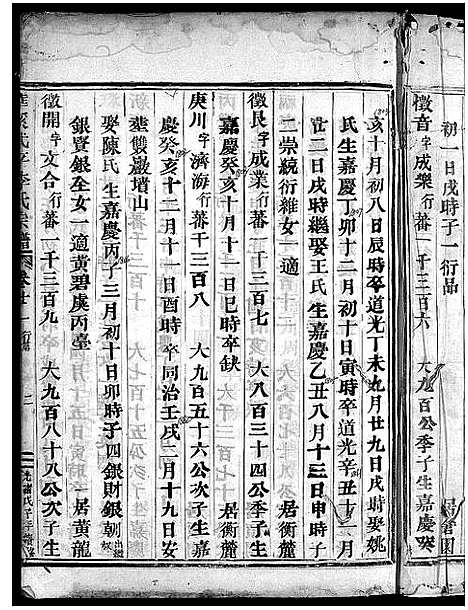 初一日戌時子一衍品
徵音字成樂行蕃一千三百六 大九百公季子生嘉慶癸
亥十月初八日辰時卒道光丁未九月廿九日戌時娶姚
氏生嘉慶丁卯十二月初十日寅時卒道光辛丑十一月
廿二日戌時繼娶王氏生嘉慶乙丑八月十三日申時子
二崇統衍雒女一適 居衡麓
徵長字成業行蕃一千三百七 大八百三十四公季子生
嘉慶癸亥十月十一日巳時卒缺 居衡麓
庚川字濟海行蕃千三百八 大九百五十六公次子生嘉
慶癸亥十二月十一日酉時卒同治壬戌二月十九日安
塟雙巖墳山
娶陳氏生嘉慶丙子三月初十日卯時子四銀財銀朝出繼
銀寶銀全女一適黃碧虞丙壺 一居黃龍
徵開字文合行蕃一千三百九 大九百八十八公次子生
李氏宗譜